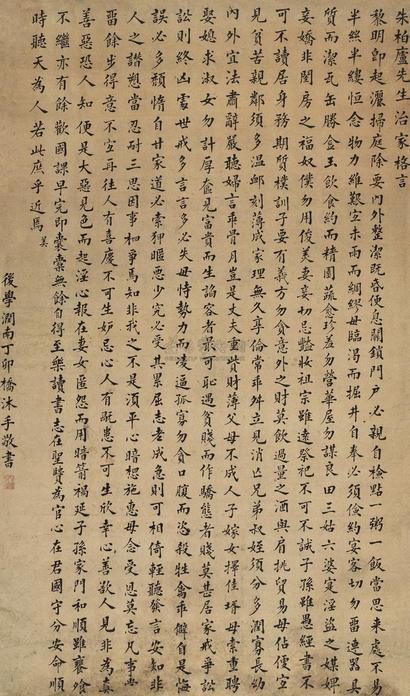 朱柏廬先生治家格言
黎明即起灑掃庭除要內外整潔既昏便息關鎖門戶必親自檢點一粥一飯當思来處不易
半絲半縷恒念物力維艱宜未雨而綢繆毋臨渴而掘井自奉必須儉約宴客切勿畱連器具
質而潔瓦缶勝金玉飲食約而精園蔬愈珍羞勿營華屋勿謀良田三姑六婆寔淫盜之媒婢
妾嬌非閨房之福奴僕勿用俊美妻妾切忌豔妝祖宗雖遠祭祀不可不誠子孫雖愚經書不
可不讀居身務期質樸訓子要有義方勿貪意外之財莫飲過量之酒與肩挑貿易毋佔便宜
見貧苦親鄰須多温卹刻薄成家理無久享倫常乖舛立見消亾兄弟叔姪須分多潤寡長幼
內外宜法肅辭嚴聽婦言乖骨月豈是丈夫重貲財薄父母不成人子嫁女擇佳壻毋索重聘
娶媳求淑女勿計厚奩見富貴而生諂容者最可恥遇貧賤而作驕態者賤莫甚居家戒爭訟
訟則終凶處世戒多言言多必失毋恃勢力而凌逼孤寡勿貪口腹而恣殺牲禽乖僻自是悔
誤必多頹惰自甘家道必索狎暱惡少究必受其累屈志老成急則可相倚輕聽發言安知非
人之譖愬當忍耐三思因事相爭焉知非我之不是須平心暗想施惠毋念受恩莫忘凡事當
畱餘步得意不宜再往人有喜慶不可生妒忌心人有既患不可生欣幸心善欲人見非為真
善惡恐人知便是大惡見色而起淫心報在妻女匿怨而用暗箭禍延子孫家門和順雖饔飧
不繼亦有餘歡國課早完即囊橐無餘自得至樂讀書志在聖賢為官心在君國守分安命順
時聽天為人若此庶乎近焉
美
後學潤南丁卯橋沐手敬書